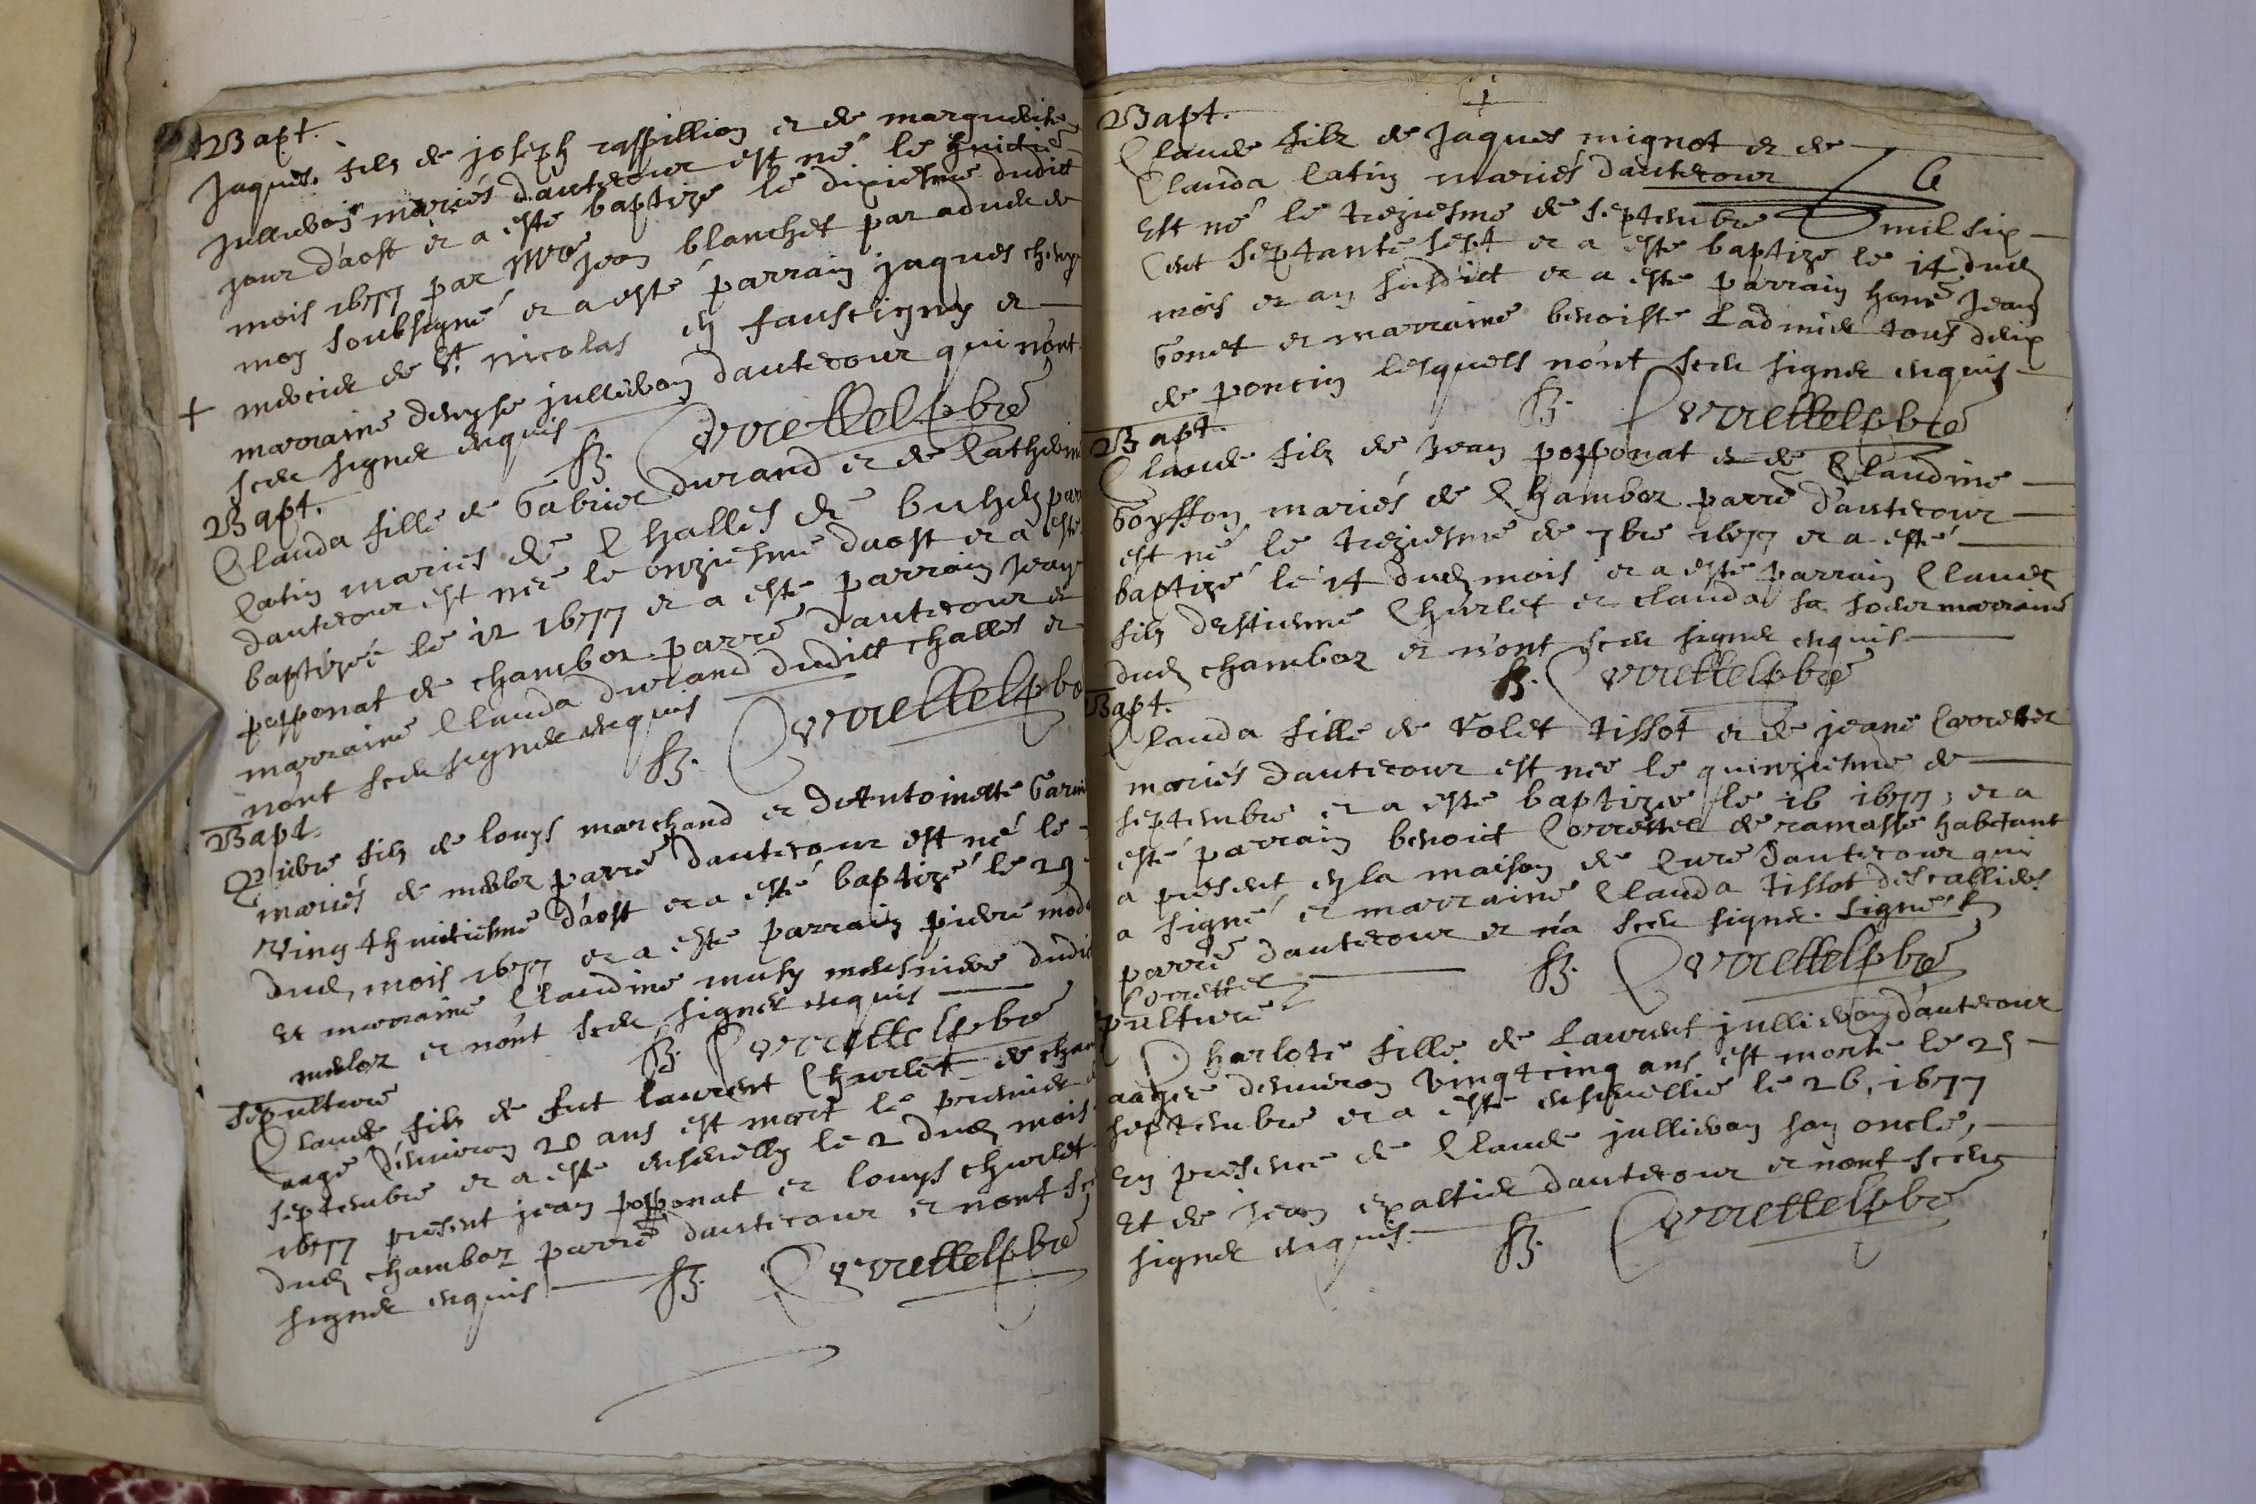 Bapt.
Jaques fils de joseph raffillion et de margueritte
jullievon mariés dautecour est né le huictie
jour d'aost et a esté baptize le dixiesme dudict
mois 1677 par Mre Jean blanchet par adveu de
moy soubsigné et a esté parrain jaques
mercier de St. nicolas en fauscigny et
+ marraine denyse jullievon dautecour qui n'ont
sceu signer enquis
Correttel pbre
Bapt.
Clauda fille de Gabriel durand et de Catherine
Catin mariés de Challes de buhen par
dautecour est née le onziesme daost et a esté
baptizée le 12 1677 et a esté parrain Jean
popponat de chambor parre dautecour et
marraine Clauda durand dudict challes et
n'ont sceu signer enquis
Correttel pbre
Bapt.
fils de louys marchand et d'Antoinette
mariés de merlor parre dautecour est né le
vingt huictiesme d'aost et a esté baptizé le 29
dud. mois 1677 et a este parrain pierre
et marraine Claudine musy dudict
merlor et n'ont sceu signer enquis
Correttel pbre
Sepulture
Claude fils de fut laurent Churlet de
aagé d'environ 20 ans est mort le premier
septembre et a esté ensevelly le 2 dud. mois
1677 present jean popponat et louys churlet
dud. chambor parre dautecour et n'ont
signer enquis
Correttel pbre
Bapt.
Claude filz de Jaques mignot et de
Clauda Catin mariés dautecour
Est né le treziesme de septembre mil six
Cent septante sept et a esté baptizé le 14 dud.
mois et an susdict et a esté parrain honé Jean
Gonet et marraine benoiste Ladmier tous deux
de poncin lesquels n'ont sceu signer enquis
Correttel pbre
Bapt.
Claude fils de Jean popponat et de Claudine
Goyffon mariés de Chambor parre d'autecour
est né le treziesme de 7bre 1677 et a esté
baptizé le 14 dud. mois et a esté parrain Claude
fils d'estienne Churlet et clauda sa soeur marraine
dud. chambor et n'ont sceu signer enquis
Correttel pbre
Bapt.
Clauda fille de Tissot et de jeane Correttel
mariés dautecour est née le quinziesme de
septembre et a esté baptizée le 16 1677, et a
esté parrain benoict Correttel de ramasse habitant
a present en la maison de Cure dautecour qui
a signé et marraine Clauda tissot
parre dautecour et n'a sceu signer. Signé
Correttel
Correttel pbre
pulture
Charlote fille de Laurent jullievon dautecour
aagée d'environ vingt cinq ans est morte le 25
septembre et a esté ensevellie le 26, 1677
En presence de Claude jullievon son oncle,
Et de Jean dautecour et n'ont sceu
signer enquis.
Correttel pbre